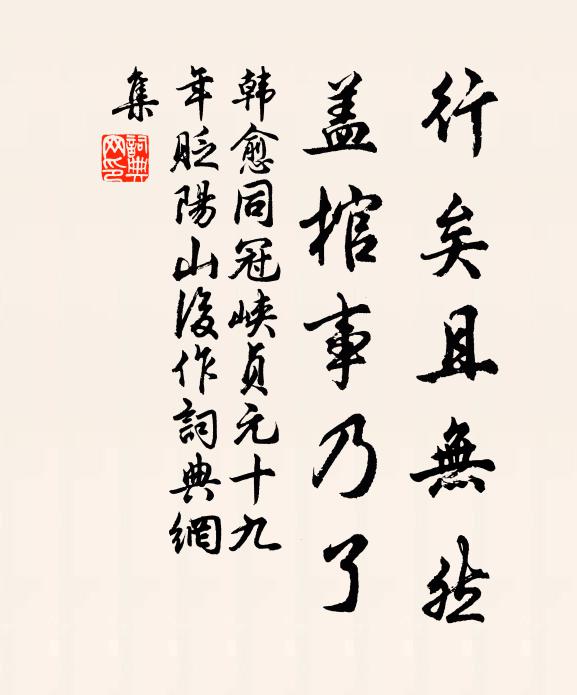 行矣且無然
盖棺事乃了
韓愈同冠峽貞元十九
年貶陽山後作詞典網
集
詞典
网印